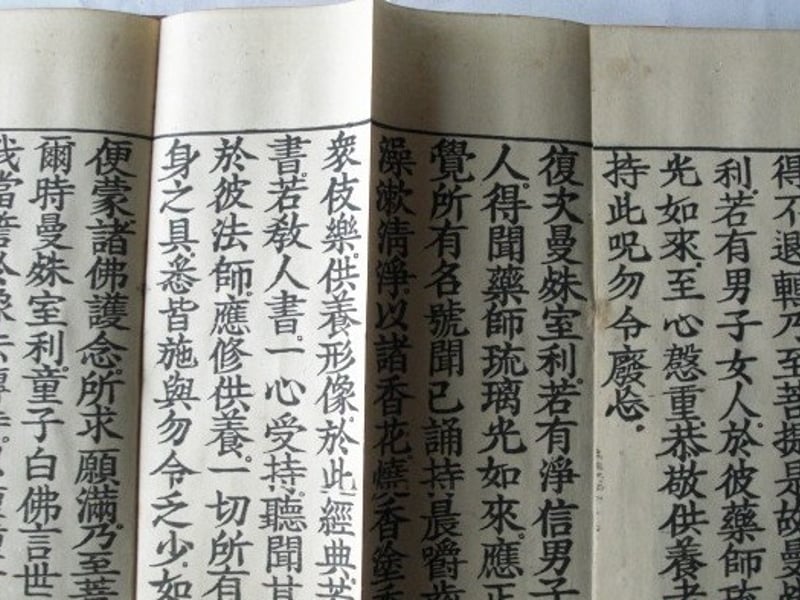 得不退轉乃至菩提是故曼殊
利。若有男子女人。於彼藥師琉
光如來。至心慇重。恭敬供養者
持此呪勿令廢忘。
復次曼殊室利。若有淨信男子
人。得聞藥師琉璃光如來。應正
覺所有名號聞已誦持。晨嚼齒
澡漱清淨。以諸香花燒香塗香
衆伎樂。供養形像。於此經典。若
書。若教人書。一心受持。聽聞其
於彼法師。應修供養。一切所有
身之具。悉皆施與勿令乏少。如
便蒙諸佛護念。所求願滿。乃至菩
爾時曼殊室利。童子白佛言世
我當誓於像法轉時。